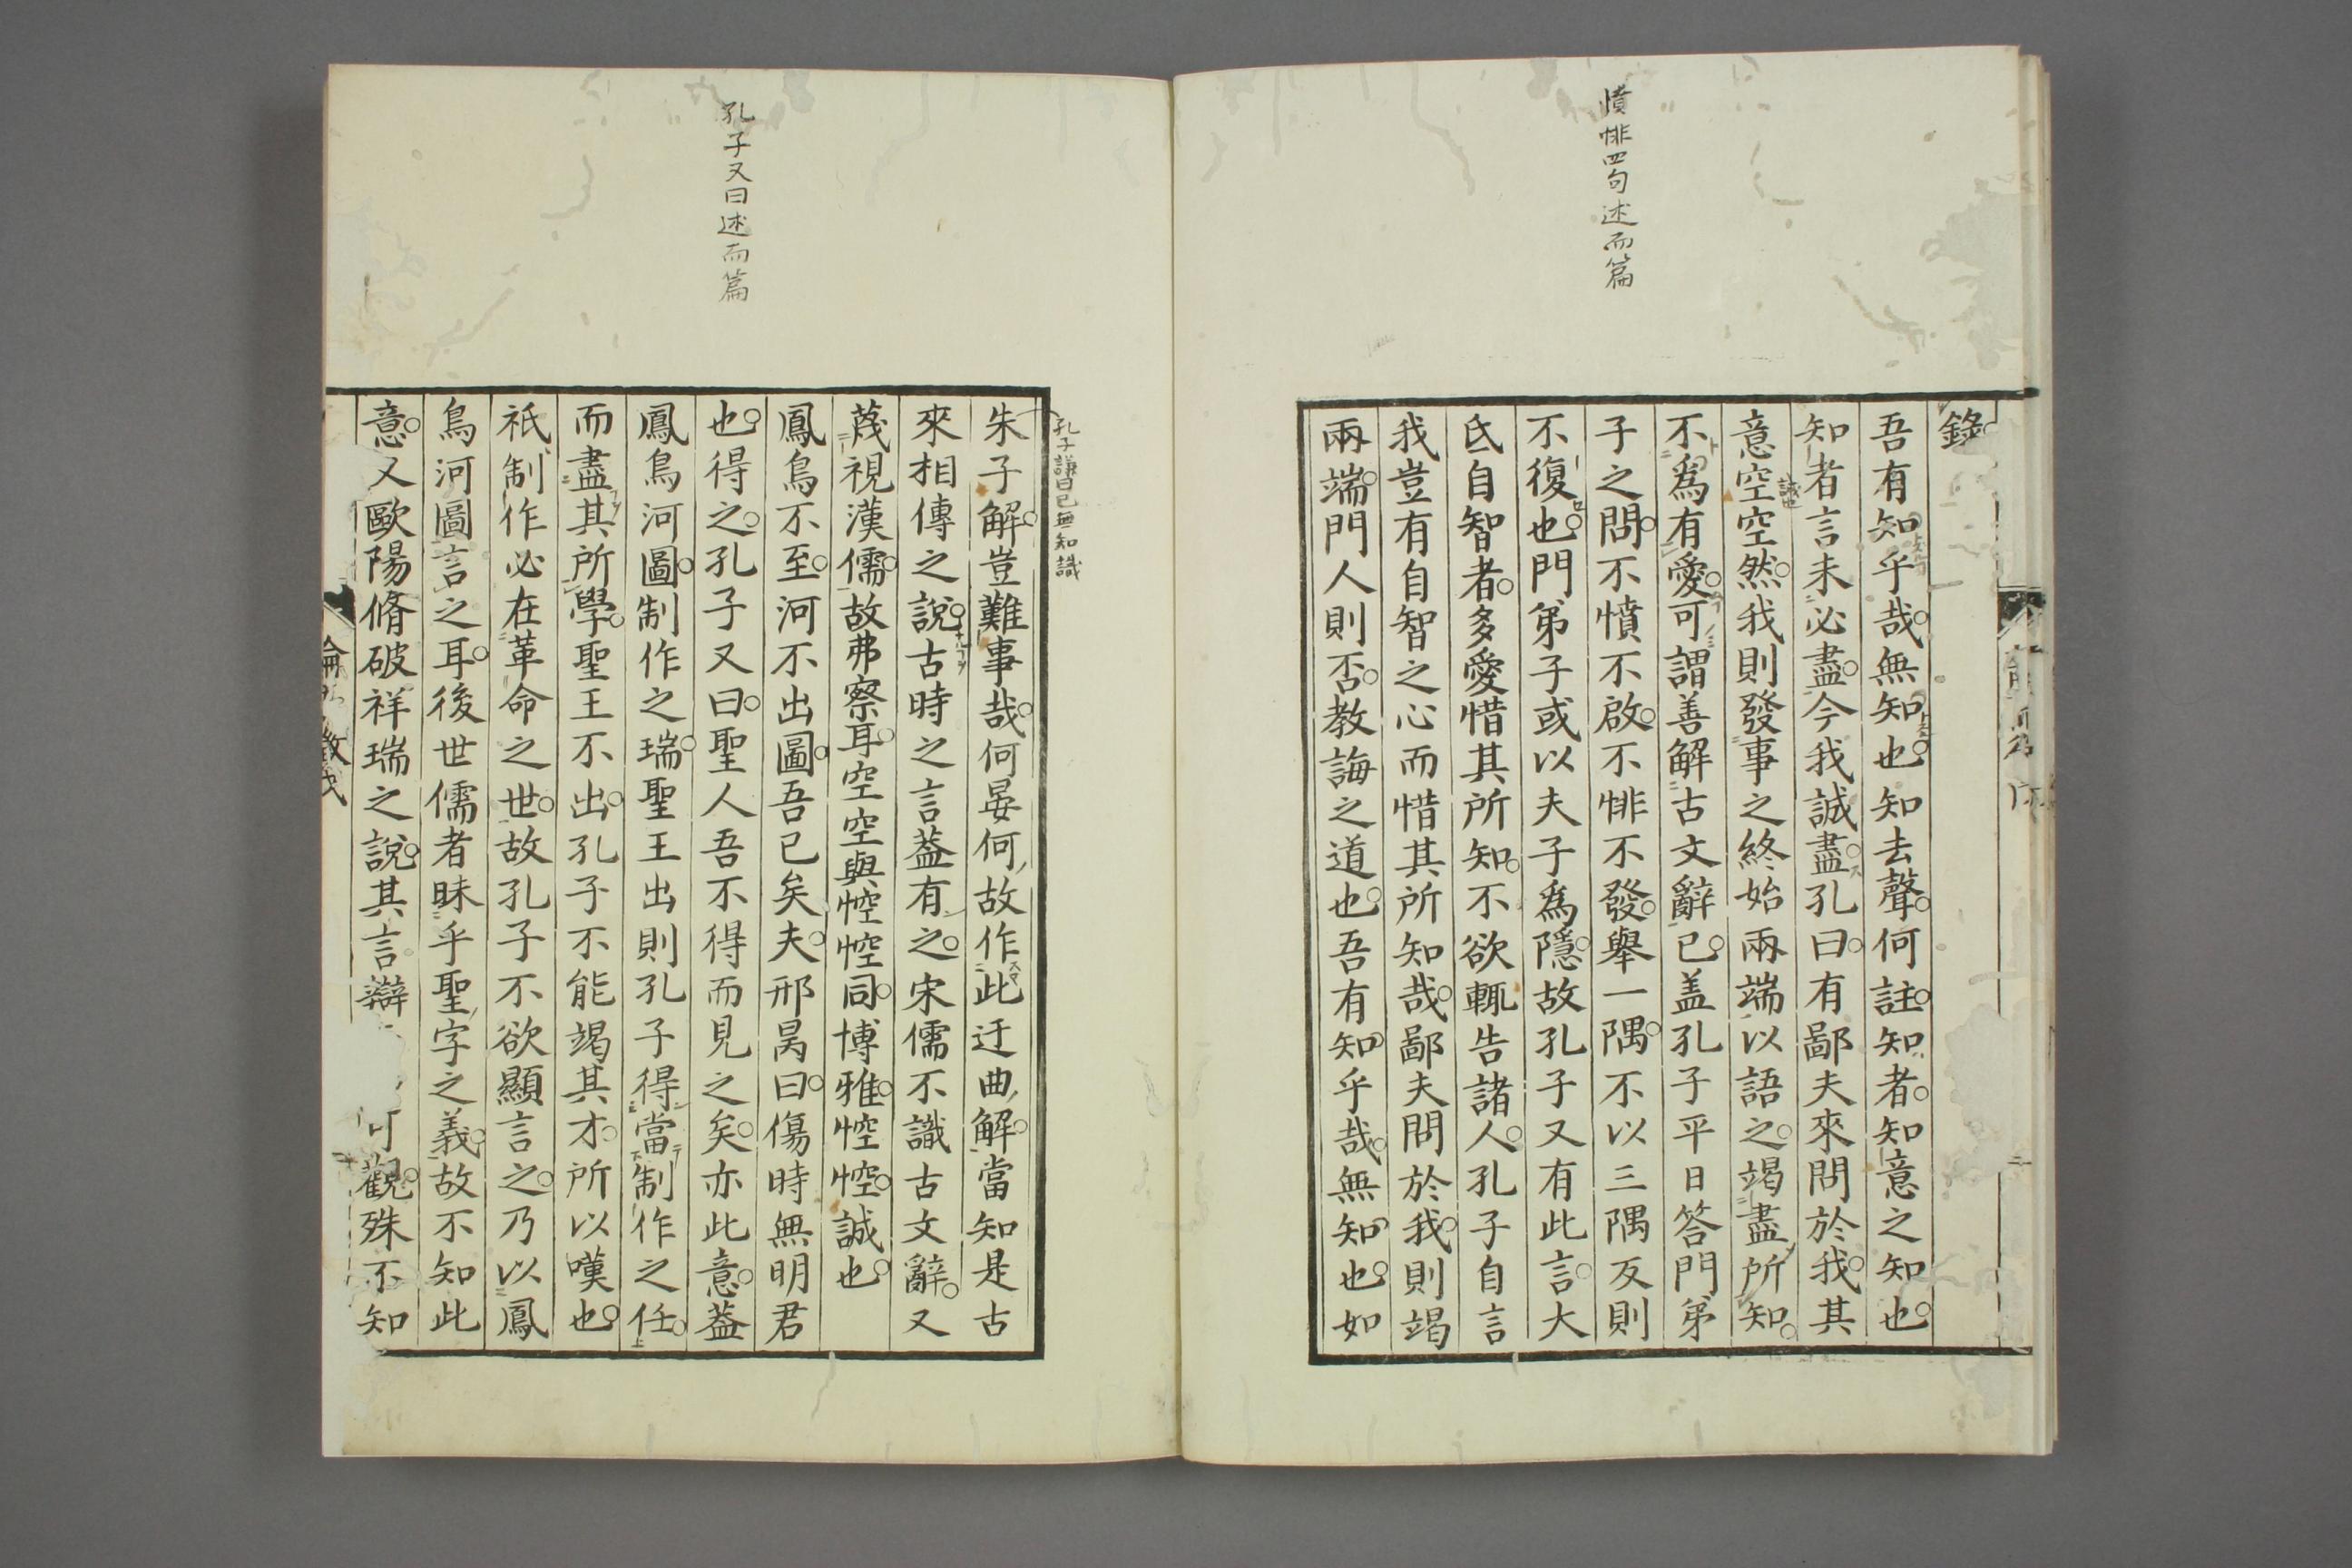 憤悱四句述而篇
錄
吾有知乎哉無知也知去聲何註知者知意之知也
知者言未必盡今我誠盡孔曰有鄙夫來問於我其
意空空然我則發事之終始兩端以語之竭盡所知
誠也
不爲有愛可謂善解古文辭已盖孔子平日答門弟
子之問不憤不啟不悱不發舉一隅不以三隅反則
不復也門弟子或以夫子爲隱故孔子又有此言大
氐自智者多愛惜其所知不欲輒告諸人孔子自言
我豈有自智之心而惜其所知哉鄙夫問於我則竭
兩端門人則否教誨之道也吾有知乎哉無知也如
孔子謙曰已無知識
孔子又曰述而篇
朱子解豈難事哉何晏何故作此迂曲解當知是古
來相傳之說古時之言葢有之宋儒不識古文辭又
蔑視漢儒故弗察耳空空與悾悾同博雅悾悾誠也
鳳鳥不至河不出圖吾已矣夫邢昺曰傷時無明君
也得之孔子又曰聖人吾不得而見之矣亦此意葢
鳳鳥河圖制作之瑞聖王出則孔子得當制作之任
而盡其所學聖王不出孔子不能竭其才所以嘆也
祇制作必在革命之世故孔子不欲顯言之乃以鳳
鳥河圖言之耳後世儒者昧乎聖字之義故不知此
意又歐陽脩破祥瑞之說其言辯可觀殊不知